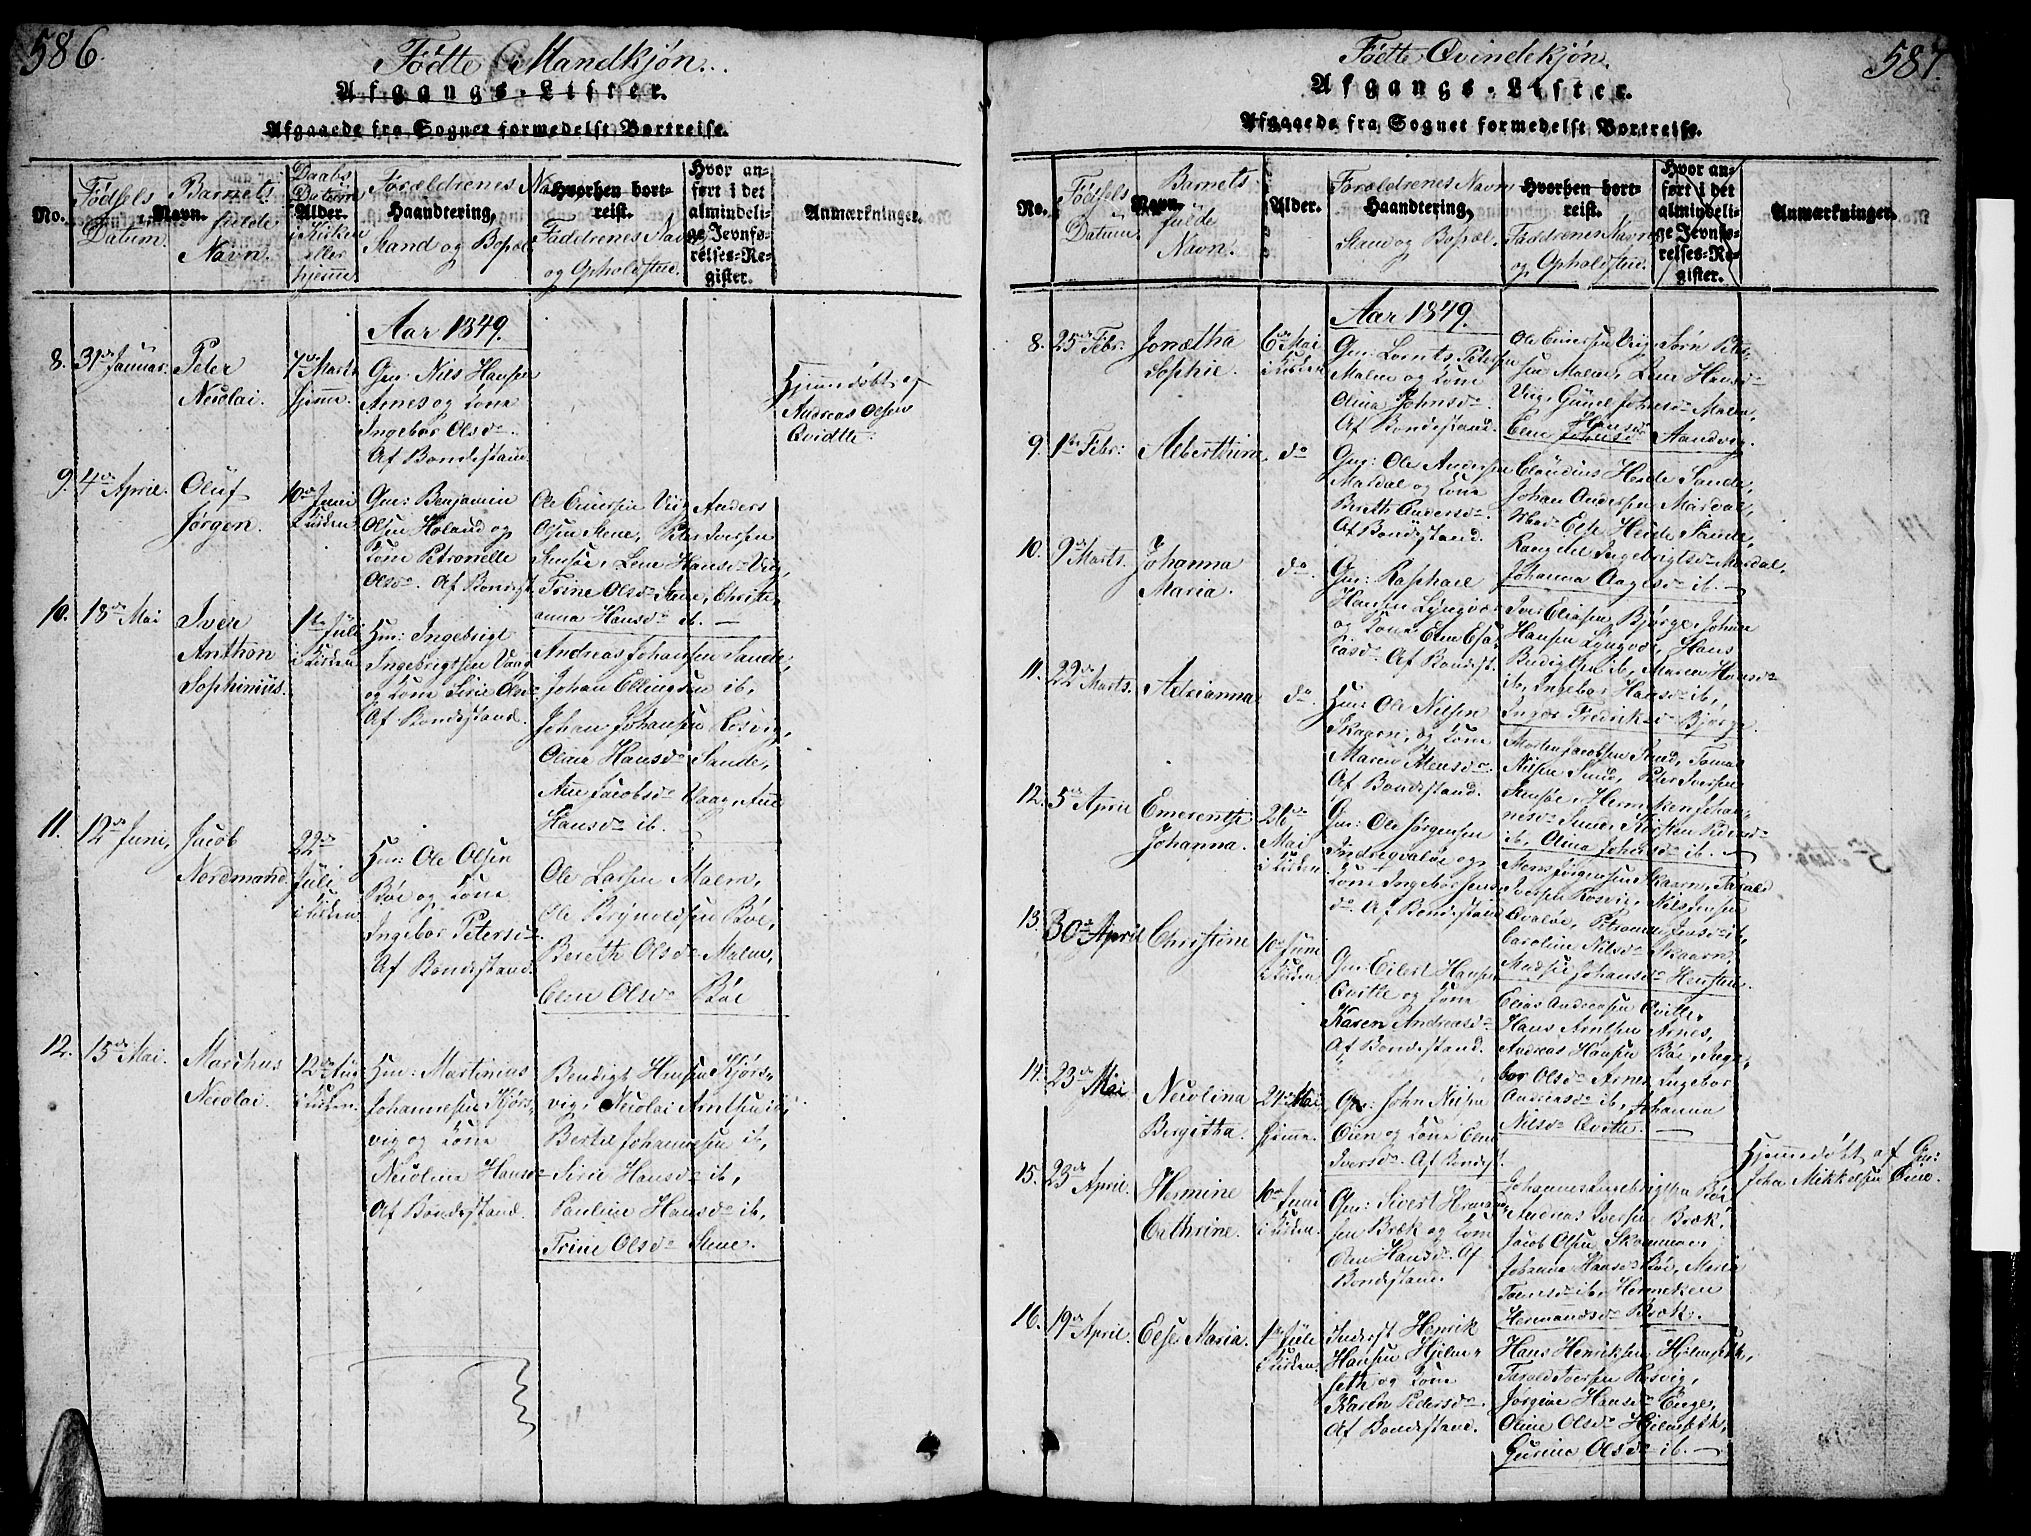 586.
Födte Mandkjøn.
Afgangs-Lister.
Afgaaede fra Sognet formedelst Bortreise.
No.
Fødsels Datum.
Navn.
Barnets fulde Navn.
Daabs Datum
Alder.
i Kirken eller hjemme
Forældrenes Navn
Haandtering,
Stand og Bopæl
Hvorhen bortreist.
Faddrenes Navn
og Opholdsted.
Hvor anført i det almindelige Jevnførelses-Register.
Anmærkninger.
Aar 1849.
8. 31de Januar.
Peter
Nicolai.
7de Marts
hjemme.
Gm: Nils Hansen
Arnes og Kone
Ingebor Olsdr
Af Bondestand.
Hjemmedøbt af
Andreas Olsen
Qvidtte.
9. 4de April.
Oluf
Jørgen.
10de Juni
i Kirken.
Gm: Benjamin
Olsen Høland og
Kone Petronelle
Olsdr. Af Bondest.
Ole Einersen Viig, Anders
Olsen Stene, Peter Iversen
Stensøe, Lene Hansdr Viig,
Trine Olsdr Stene, Christi-
anna Hansdr ib. —
10. 18de Mai
Iver
Anthon
Sophinius.
1te Juli
i Kirken.
Hm: Ingebrigt
Ingebrigtsen Vaag
og Kone Sirie Olsdr
Af Bondestand.
Andreas Johansen Sande,
Johan Ellingsen ib,
Johan Johansen Rosvig,
Olina Hansdr Sande,
Ane Jacobsdr Vaag, Ane
Hansdr ib.
11. 12te Juni,
Jacob
Nordmand
22de
Juli
i Kirken.
Hm: Ole Olsen
Bøe og Kone
Ingebor Petersdr
Af Bondestand.
Ole Larsen Malm,
Ole Brynildsen Bøe,
Bereth Olsdr Malm,
Elen Olsdr Bøe
12. 15de Mai.
Marthus
Nicolai.
12te Aug
i Kirken.
Hm: Martinius
Johannesen Kjørs-
vig og Kone
Nicolina Hansdr
Af Bondestand.
Bendigt Hansen Kjørs-
vig, Nicolai Arntsen ib,
Bertil Johannesen ib,
Sirie Hansdr ib,
Pauline Hansdr ib,
Trine Olsdr Stene.
587.
Fødte Qvindekjøn.
Afgangs-Lister.
Afgaaede fra Sognet formedelst Bortreise.
No.
Fødsels
Datum.
Navn.
Barnets
fulde
Navn.
Alder.
Forældrenes Navn
Haandtering,
Stand og Bopæl.
Hvorhen bortreist.
Faddrenes Navn
og Opholdsted.
Hvor anført i det almindelige Jevnførelses-Register.
Anmærkninger.
Aar 1849.
8. 25de Febr.
Jonætha
Sophie.
6te Mai
i Kirken
Gm: Lornts Petersen
Malm og Kone
Olina Johnsdr
Af Bondestand.
Ole Einersen Viig, Søren Peter-
sen Malm, Lene Hansdr
Viig, Gunel Johnsdr Malm,
Elen Hansdr Aandvig.
9. 1te Febr:
Alberthine
do
Gm: Ole Andersen
Mardal og Kone
Berith Andersdr.
Af Bondestand.
Claudius Heide Sande,
Johan Andersen Mardal,
Mad. Else Heide Sande,
Rangdel Ingebrigtsdr Mardal,
Johanna Aagesdr ib. —
10. 9de Marts.
Johanna
Maria.
do.
Gm: Raphael
Hansen Lyngvær
og Kone Elen Esa-
iasdr. Af Bondest.
Iver Eliasen Bjørge, Johan
Hansen Lyngvær, Hans
Bendigtsen ib, Maren Hansdr
ib, Ingebor Hansdr ib,
Inger Fredriksdr Bjørge.
11. 22de Marts.
Adrianna
do.
Hm: Ole Nilsen
Skaarn, og Kone
Maren Stensdr.
Af Bondestand.
Morten Jacobsen Sund, Tomas
Nilsen Sund, Peter Iversen
Stensøe, Hermeken Johan-
nesdr Sund, Kirsten Pedersdr
ib, Anna Johansdr ib. —
12. 5te April
Emerentse
Johanna.
26de
Mai
i Kirken
Gm: Ole Jørgensen
Indregvaløe og
Kone Ingebor Jens-
dr. Af Bondestand
Jens Jørgensen Skaarn, Tarald
Iversen Rosvig, Nils Jensen
Qvaløe, Petrone Jensdr ib,
Caroline Nilsdr Skaarn,
Madsie Johansdr Henstan.
13. 30te April
Christine
10de Juni
i Kirken
Gm: Eilert Hansen
Qvitte og Kone
Karen Andreasdr
Af Bondestand.
Elias Andreasen Qvitte,
Hans Arntsen Arnes,
Andreas Hansen Bøe, Inge-
bor Olsdr Arnes, Ingebor
Andreasdr ib, Johanna
Nilsdr Qvitte. —
14. 23de Mai
Nicolina
Bergitha.
24de Mai
hjemme.
Gm: John Nilsen
Øien og Kone Elen
Iversdr. Af Bondest.
Hjemmedøbt af Gm:
John Mikkelsen Øine.
15. 23de April.
Hermine
Cathrine.
10de Juni
i Kirken.
Gm: Sivert Herman-
sen Bræk og Kone
Elen Hansdr. Af
Bondestand.
Johannes Ingebrigtsen Bøe,
Andreas Iversen Bræk,
Jacob Olsen Skommoe,
Johanna Hansdr Bøe, Maria
Toensdr ib, Hermeken
Hermandsdr Bræk.
16. 19de April.
Else Maria.
1te Juli
i Kirken.
Inderst Henrik
Hansen Hjelm-
seth og Kone
Karen Pedersdr.
Af Bondestand.
Hans Henriksen Hjelmseth,
Tarald Iversen Rosvig,
Jørgine Hansdr Enge,
Oline Olsdr Hjelmseth,
Gurina Olsdr ib. —